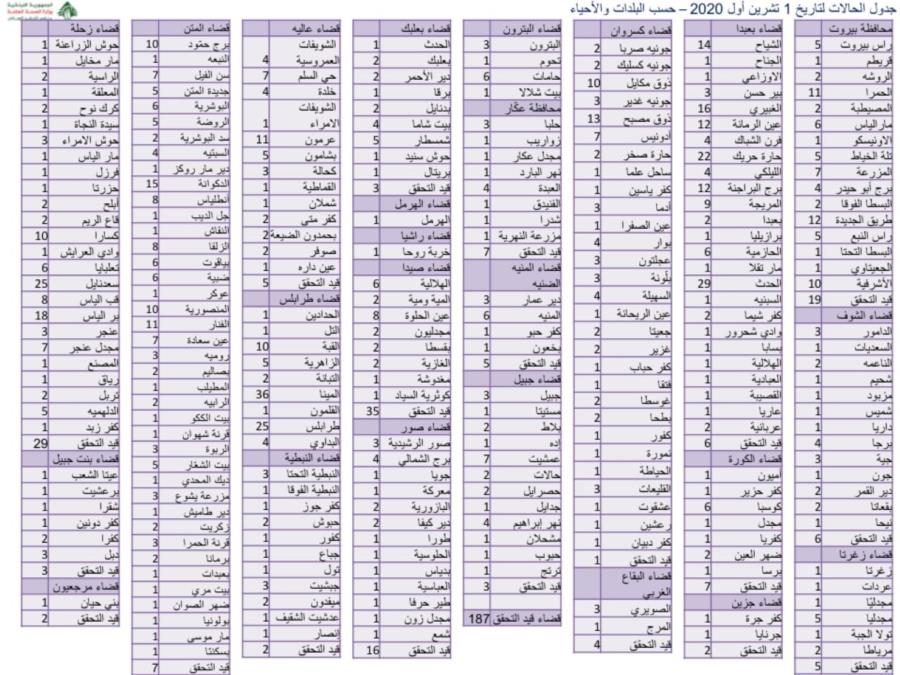 جدول الحالات لتاريخ 1 تشرين أول 2020 – حسب البلدات والأحياء
محافظة بيروت
راس بيروت 5
قريطم 1
الروشه 2
الحمرا 11
المصيطبة 2
مار الياس 6
الاونيسكو 1
تلة الخياط 5
المزرعة 7
برج أبو حيدر 4
البسطا الفوقا 2
طريق الجديدة 12
راس النبع 5
البسطا التحتا 1
الجعيتاوي 1
الأشرفية 10
قيد التحقق 19
قضاء الشوف
الدامور 3
السعديات 1
الناعمه 2
شحيم 1
مزبود 1
شميس 1
داريا 1
برجا 4
جية 3
جون 1
دير القمر 2
بقعاتا 2
نيحا 1
قيد التحقق 6
قضاء زغرتا
زغرتا 1
عردات 1
مجدليّا 1
مجدليا 5
تولا الجبة 1
مرياطا 2
قيد التحقق 5
قضاء بعبدا
الشياح 14
الجناح 1
الاوزاعي 1
بير حسن 3
الغبيري 16
عين الرمانة 12
فرن الشباك 4
حارة حريك 22
الليلكي 4
برج البراجنة 12
المريجة 9
بعبدا 2
برازيليا 1
الحازمية 6
مار تقلا 1
الحدث 29
السبنيه 1
كفر شيما 2
وادي شحرور 1
بسابا 1
الهلالية 1
العبادية 1
القصيبة 1
عاريا 1
عربانية 2
قيد التحقق 6
قضاء الكورة
أميون 1
كفر حزير 1
كوسبا 6
مجدل 1
كفريا 1
ضهر العين 2
برسا 1
قيد التحقق 7
قضاء جزين
كفر جرة 1
جرنايا 1
قيد التحقق 2
قضاء كسروان
جونيه صربا 2
جونيه كسليك 2
ذوق مكايل 10
جونيه غدير 3
ذوق مصبح 13
ادونيس 7
حارة صخر 2
ساحل علما 1
كفر ياسين 1
أدما 3
عين الصفرا 1
بوار 4
عجلتون 3
بلّونة 3
السهيلة 4
عين الريحانة 1
جعيتا 2
غزير 2
كفر حباب 1
فتقا 1
غوسطا 2
بطحا 2
كفور 1
نمورة 1
الحياطة 1
القليعات 3
عشقوت 1
رعشين 1
كفر دبيان 1
قيد التحقق 1
قضاء البقاع
الغربي
الصويري 3
المرج 1
قيد التحقق 4
قضاء البترون
البترون 3
تحوم 1
حامات 6
بيت شلالا 1
محافظة عكّار
حلبا 3
زواريب 1
مجدل عكار 1
نهر البارد 1
العبدة 4
الفنيدق 1
شدرا 1
مزرعة النهرية 1
قيد التحقق 7
قضاء المنيه
الضنيه
دير عمار 3
المنيه 6
كفر حبو 1
بخعون 1
قيد التحقق 5
قضاء جبيل
جبيل 3
مستيتا 1
بلاط 2
إده 1
عمشيت 7
حالات 2
حصرايل 2
جدايل 1
نهر إبراهيم 4
مشحلان 1
حبوب 1
ترتج 1
قيد التحقق 3
قضاء قيد التحقق 187
قضاء بعلبك
الحدث 1
بعلبك 2
دير الأحمر 2
برقا 1
بدنايل 2
بيت شاما 4
شمسطار 5
حوش سنيد 1
بريتال 1
قيد التحقق 3
قضاء الهرمل
الهرمل 1
قضاء راشيا
خربة روحا 1
قضاء صيدا
الهلالية 6
المية ومية 2
عين الحلوة 8
مجدليون 2
بقسطا 2
الغازية 2
مغدوشة 1
كوثرية السياد 1
قيد التحقق 35
قضاء صور
صور الرشيدية 3
برج الشمالي 4
جويا 1
معركة 1
البازورية 2
دير كيفا 2
طورا 1
الحلوسية 1
بدياس 1
العباسية 1
طير حرفا 1
مجدل زون 1
شمع 1
قيد التحقق 16
قضاء عاليه
الشويفات
العمروسية 4
حي السلم 7
خلدة 4
الشويفات
الامراء 1
عرمون 11
بشامون 5
كحالة 3
القماطية 1
شملان 1
كفر متى 2
بحمدون الضيعة 2
صوفر 2
عين داره 1
قيد التحقق 5
قضاء طرابلس
الحدادين 1
التل 1
القبة 10
الزاهرية 5
التبانة 2
المينا 36
القلمون 1
طرابلس 25
البداوي 4
قضاء النبطية
النبطية التحتا 3
النبطية الفوقا 1
كفر جوز 1
حبوش 2
كفور 1
جباع 1
تول 1
جبشيت 3
ميفدون 2
عدشيت الشقيف 1
إنصار 1
قيد التحقق 2
قضاء المتن
برج حمّود 10
النبعه 1
سن الفيل 7
جديدة المتن 5
البوشرية 6
الروضة 5
سد البوشرية 2
السبتيه 4
دير مار روكز 1
الدكوانة 15
أنطلياس 8
جل الديب 1
النقاش 1
الزلقا 8
بياقوت 6
ضبية 6
عوكر 1
المنصورية 10
الفنار 11
عين سعادة 7
روميه 3
بصاليم 2
المطيلب 1
الرابيه 2
بيت الككو 1
قرنة شهوان 1
الربوة 3
بيت الشعار 5
ديك المحدي 1
مزرعة يشوع 3
دير طاميش 1
زكريت 2
قرنة الحمرا 3
برمانا 2
بعبدات 1
بيت مري 1
ضهر الصوان 1
بولونيا 1
مار موسى 1
بسكنتا 1
قيد التحقق 7
قضاء زحلة
حوش الزراعنة 1
مار مخايل 1
الراسية 2
المعلقة 1
كرك نوح 2
سيدة النجاة 1
حوش الامراء 3
مار الياس 1
فرزل 1
حزرتا 1
أبلح 2
قاع الريم 2
كسارا 10
وادي العرايش 1
تعلبايا 6
سعدنايل 25
قب الياس 8
بر الياس 18
عنجر 3
مجدل عنجر 7
المصنع 1
رياق 1
تربل 2
الدلهميه 5
كفر زبد 1
قيد التحقق 29
قضاء بنت جبيل
عيتا الشعب 1
برعشيت 1
شقرا 1
كفر دونين 1
كفرا 2
دبل 3
قيد التحقق 3
قضاء مرجعيون
بني حيان 1
قيد التحقق 2